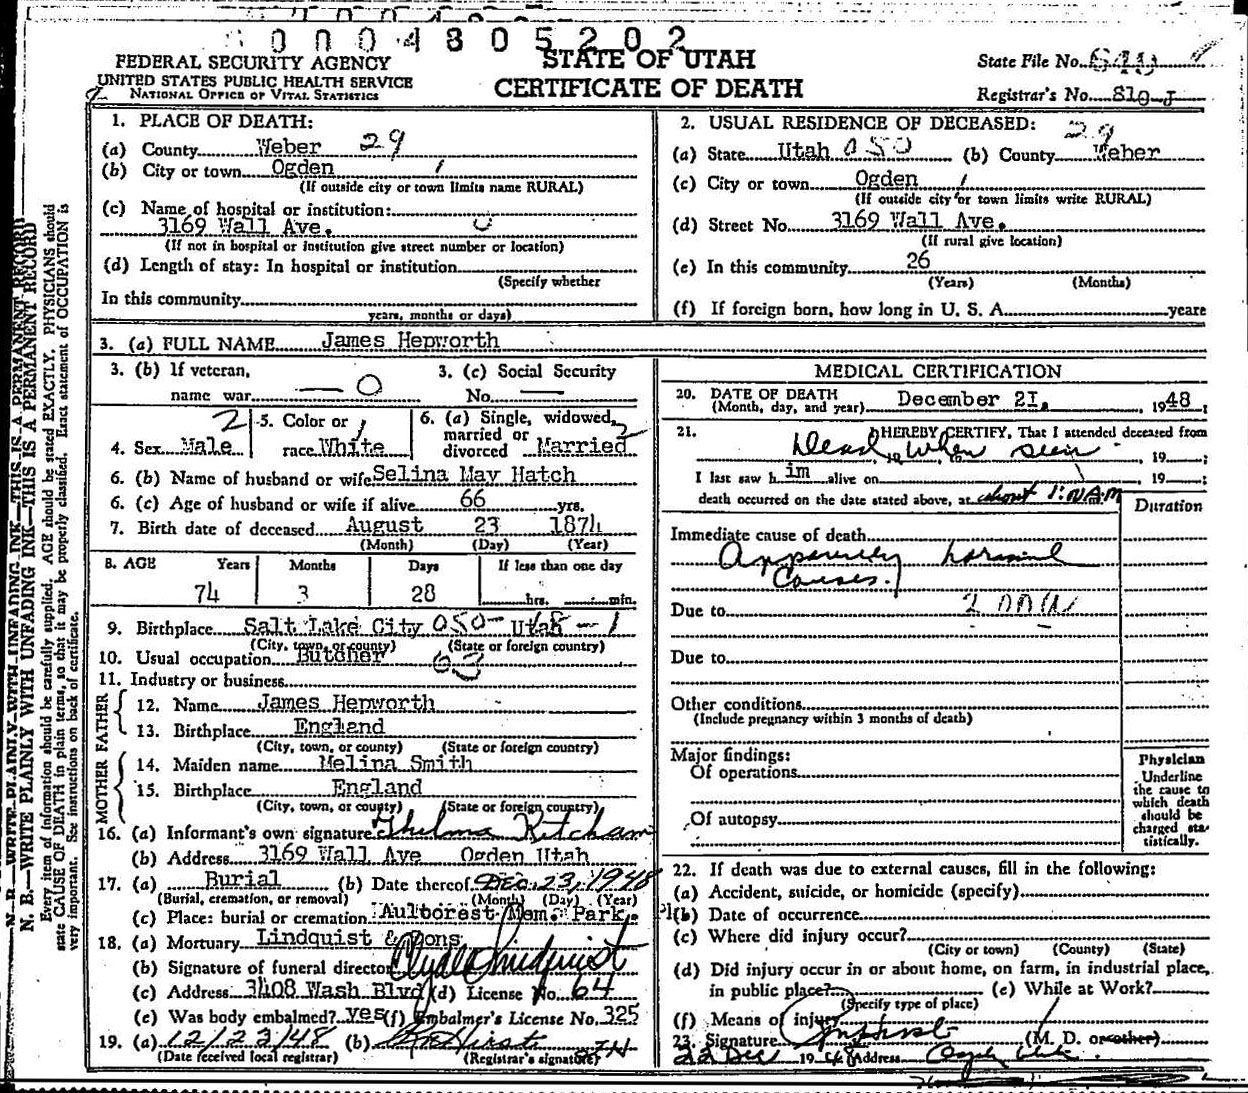 0004805202
FEDERAL SECURITY AGENCY
UNITED STATES PUBLIC HEALTH SERVICE
NATIONAL OFFICE OF VITAL STATISTICS
STATE OF UTAH
CERTIFICATE OF DEATH
State File No.
Registrar's No. 810-J
N. B.—WRITE PLAINLY WITH UNFADING INK—THIS IS A PERMANENT RECORD
Every item of information should be carefully supplied. AGE should be stated EXACTLY. PHYSICIANS should
state CAUSE OF DEATH in plain terms, so that it may be properly classified. Exact statement of OCCUPATION is
very important. See instructions on back of certificate.
1. PLACE OF DEATH:
(a) County Weber 29
(b) City or town Ogden 1
(If outside city or town limits name RURAL)
(c) Name of hospital or institution:
3169 Wall Ave. 0
(If not in hospital or institution give street number or location)
(d) Length of stay: In hospital or institution
(Specify whether
In this community
years, months or days)
2. USUAL RESIDENCE OF DECEASED: 29
(a) State Utah 050 (b) County Weber
(c) City or town Ogden 1
(If outside city or town limits write RURAL)
(d) Street No. 3169 Wall Ave.
(If rural give location)
(e) In this community 26
(Years) (Months)
(f) If foreign born, how long in U. S. A. years
3. (a) FULL NAME James Hepworth
3. (b) If veteran,
name war — 0
3. (c) Social Security
No. —
4. Sex Male 2
5. Color or
race White 1
6. (a) Single, widowed,
married or
divorced Married 2
6. (b) Name of husband or wife Selina May Hatch
6. (c) Age of husband or wife if alive 66 yrs.
7. Birth date of deceased August 23 1874
(Month) (Day) (Year)
8. AGE Years Months Days If less than one day
74 3 28 hrs. min.
9. Birthplace Salt Lake City 050 Utah
(City, town, or county) (State or foreign country)
10. Usual occupation Butcher
11. Industry or business
FATHER
12. Name James Hepworth
13. Birthplace England
(City, town, or county) (State or foreign country)
MOTHER
14. Maiden name Melina Smith
15. Birthplace England
(City, town, or county) (State or foreign country)
16. (a) Informant's own signature Thelma Kitcham
(b) Address 3169 Wall Ave Ogden Utah
17. (a) Burial (b) Date thereof Dec. 23, 1948
(Burial, cremation, or removal) (Month) (Day) (Year)
(c) Place: burial or cremation Aultorest Mem. Park.
18. (a) Mortuary Lindquist & Sons
(b) Signature of funeral director Clyde Lindquist
(c) Address 3408 Wash Blvd (d) License No. 64
(e) Was body embalmed? yes (f) Embalmer's License No. 325
19. (a) 12/23/48 (b)
(Date received local registrar) (Registrar's signature)
MEDICAL CERTIFICATION
20. DATE OF DEATH
(Month, day, and year) December 21, 1948;
21. I HEREBY CERTIFY, That I attended deceased from
Dead when seen, 19 ;
I last saw h im alive on , 19 ;
death occurred on the date stated above, at about
Duration
Immediate cause of death
Apparently
Causes.
Due to
Due to
Other conditions
(Include pregnancy within 3 months of death)
Major findings:
Of operations
Of autopsy
Physician
Underline
the cause to
which death
should be
charged sta-
tistically.
22. If death was due to external causes, fill in the following:
(a) Accident, suicide, or homicide (specify)
(b) Date of occurrence
(c) Where did injury occur?
(City or town) (County) (State)
(d) Did injury occur in or about home, on farm, in industrial place,
in public place? (e) While at Work?
(Specify type of place)
(f) Means of injury
23. Signature (M. D. or other)
22 Dec 1948 Address